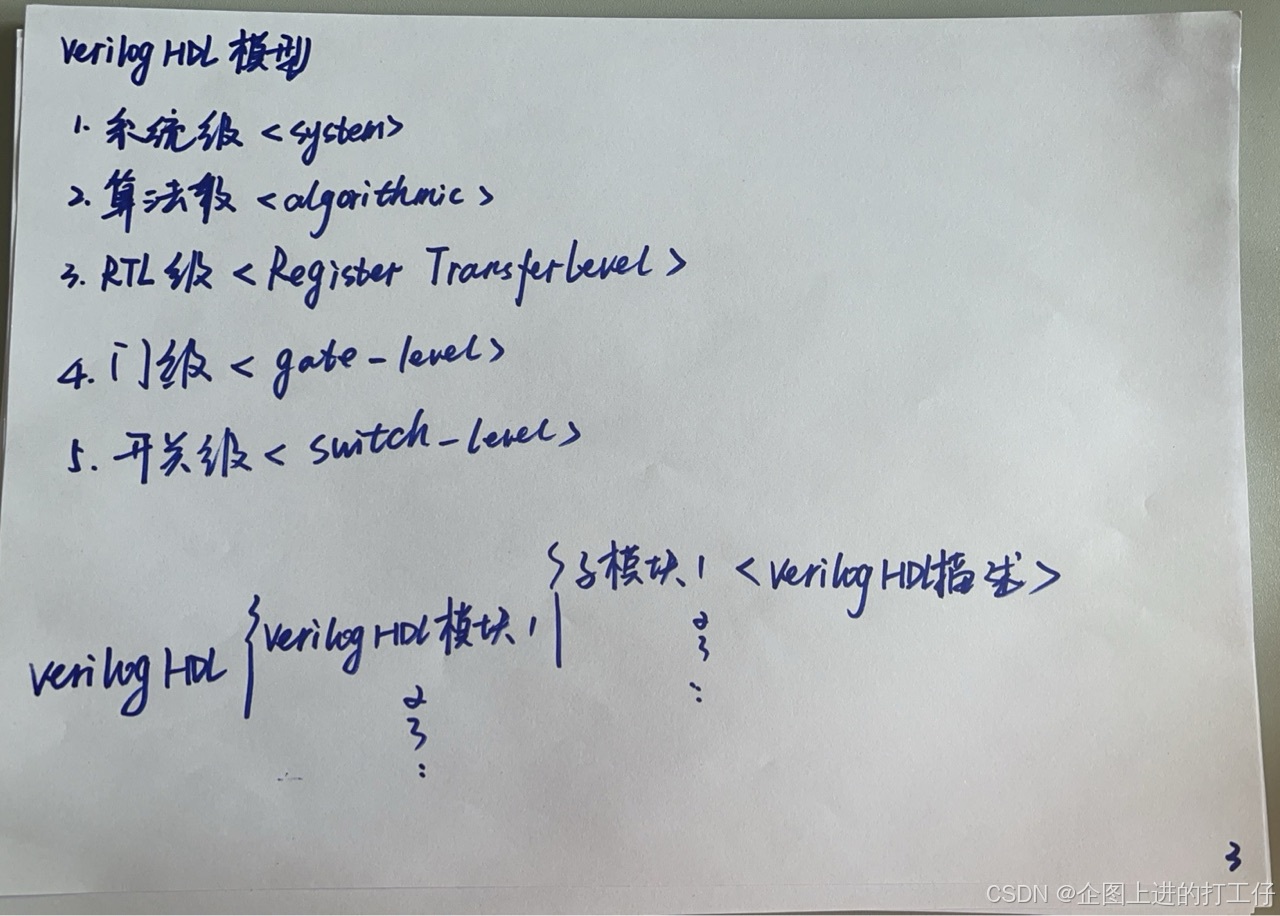 verilog HDL 模型
1. 系统级 <system>
2. 算法级 <algorithmic>
3. RTL级 <Register Transfer Level>
4. 门级 <gate-level>
5. 开关级 <switch-level>
verilog HDL { verilog HDL 模块1 { 子模块1 <verilog HDL描述>
2
3
:
2
3
:
3
CSDN @企图上进的打工仔